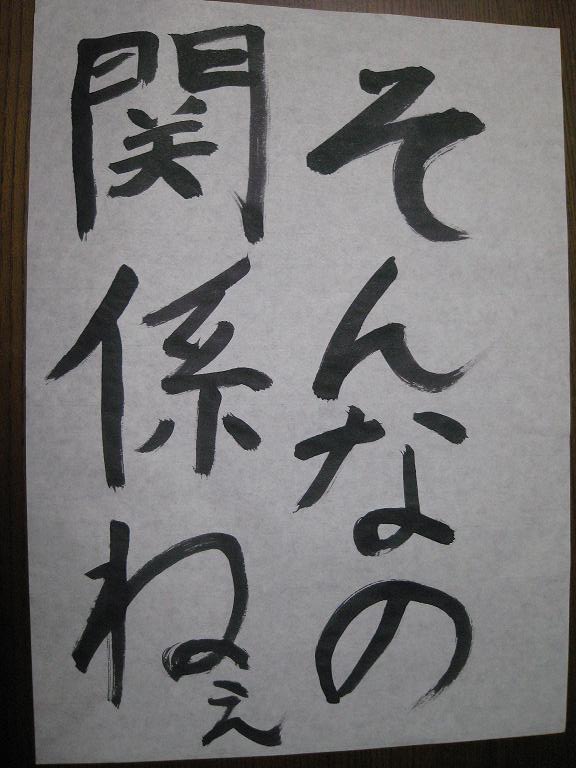 そんなの
関係ねぇ